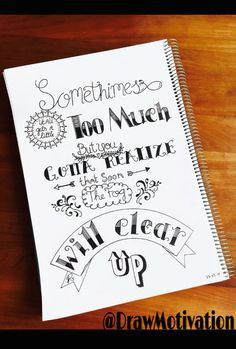 Somethimes
this gets a little
Too Much
But you
GOTTA REALIZE
that Soon
The Fog
Will clear
UP
@DrawMotivation